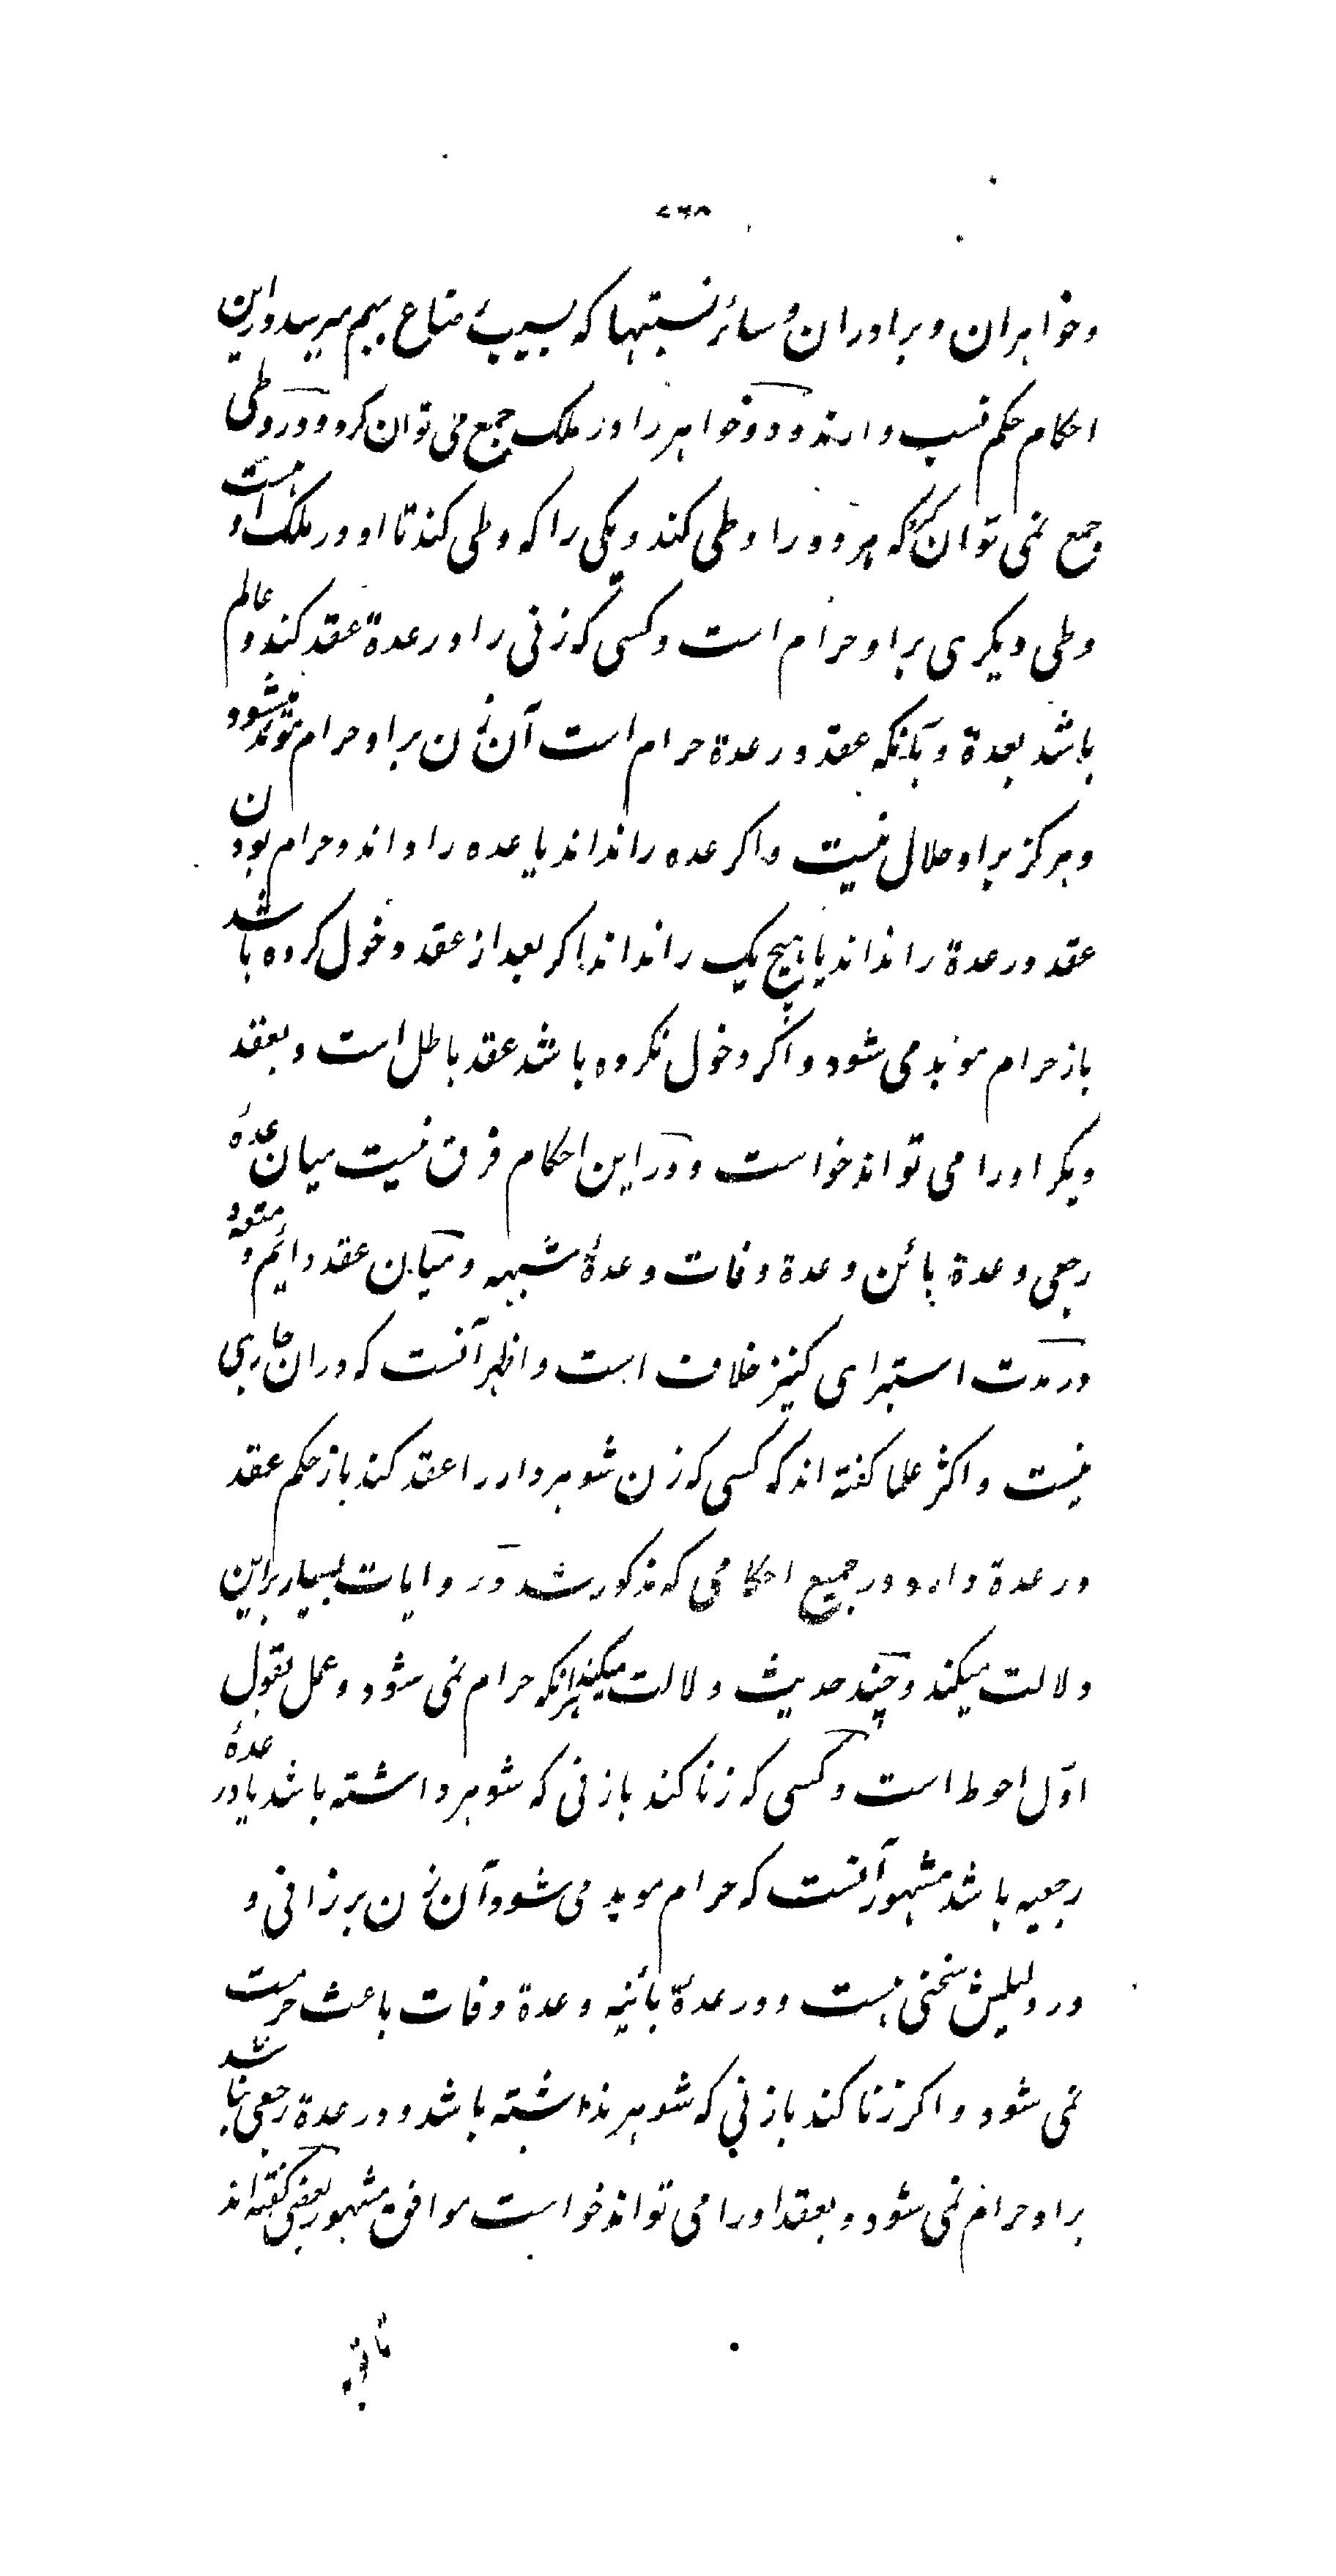 وخواهران وبرادران وسائر نسبتها که بسبب رضاع بهم میرسد در این
احکام حکم نسب دارند ودو خواهر را در ملک جمع می توان کرد ودر وطی
جمع نمی توان کرد که هر دو را وطی کند ویکی را که وطی کند تا او در ملک او است
وطی دیکری بر او حرام است وکسی که زنی را در عدة عقد کند و عالم
باشد بعدة وبآنکه عقد در عدة حرام است آن زن بر او حرام موبد میشود
وهرکز بر او حلال نیست واکر عده را نداند یا عده را داند وحرام بودن
عقد در عدة را نداند یا هیچ یک را نداند اکر بعد از عقد دخول کرده باشد
باز حرام موبد می شود واکر دخول نکرده باشد عقد باطل است وبعقد
دیکر او را می تواند خواست ودر این احکام فرق نیست میان عدهٔ
رجعی وعدة بائن وعدة وفات وعدهٔ شبهه ومیان عقد دائم و متعه و
در مدت استبرای کنیز خلاف است واظهر آنست که در ان جاری
نیست واکثر علما کفته اند که کسی که زن شوهردار را عقد کند باز حکم عقد
در عدة دارد در جمیع احکامی که مذکور شد ودر روایات بسیار بر این
دلالت میکند وچند حدیث دلالت میکند بر انکه حرام نمی شود وعمل بقول
اول احوط است وکسی که زنا کند با زنی که شوهر داشته باشد یا در عدهٔ
رجعیه باشد مشهور آنست که حرام موبد می شود آن زن بر زانی و
در دلیلش سخنی هست ودر عدهٔ بائنه وعدة وفات باعث حرمت
نمی شود واکر زنا کند با زنی که شوهر نداشته باشد ودر عدة رجعی نباشد
بر او حرام نمی شود وبعقد او را می تواند خواست موافق مشهور وبعضی کفته اند